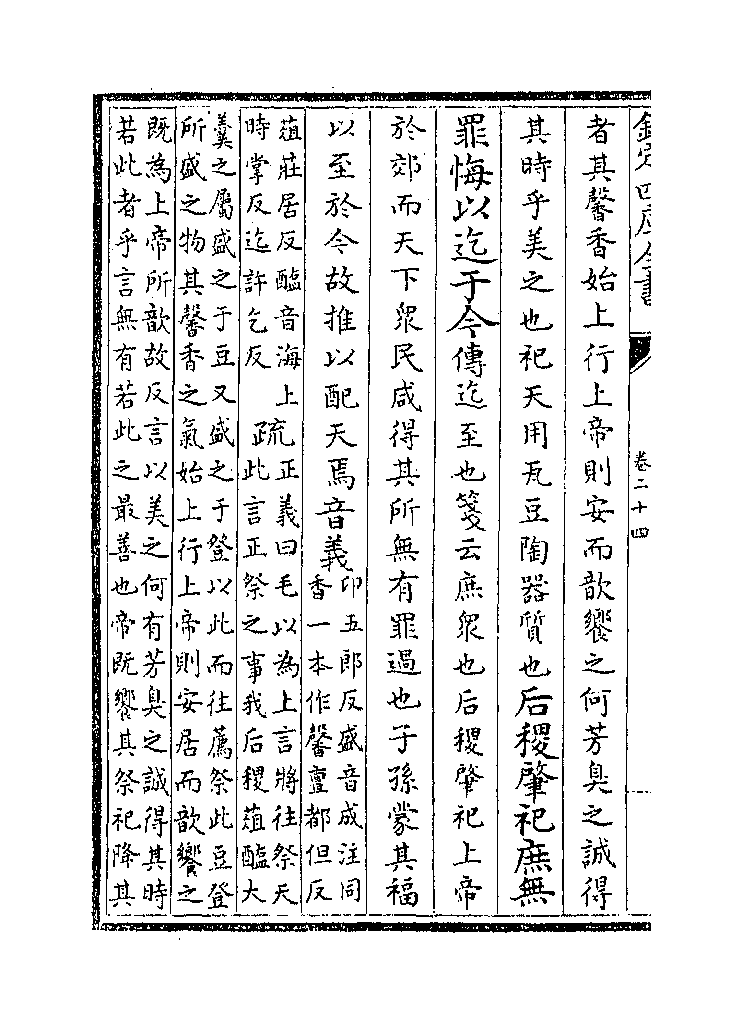 欽定四庫全書
卷二十四
者其馨香始上行上帝則安而歆饗之何芳臭之誠得
其時乎美之也祀天用瓦豆陶器質也后稷肇祀庶無
罪悔以迄于今傳迄至也箋云庶衆也后稷肇祀上帝
於郊而天下衆民咸得其所無有罪過也子孫蒙其福
以至於今故推以配天焉音義
卬五郎反盛音成注同
香一本作馨亶都但反
葅莊居反醢音海上
時掌反迄許乞反
疏
正義曰毛以為上言將往祭天
此言正祭之事我后稷葅醢大
羹之屬盛之于豆又盛之于登以此而往薦祭此豆登
所盛之物其馨香之氣始上行上帝則安居而歆饗之
既為上帝所歆故反言以美之何有芳臭之誠得其時
若此者乎言無有若此之最善也帝既饗其祭祀降其